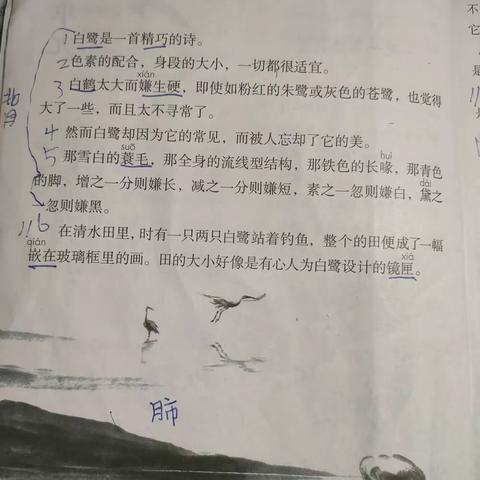 1 白鹭是一首精巧的诗。
2 色素的配合，身段的大小，一切都很适宜。
xián
3 白鹤太大而嫌生硬，即使如粉红的朱鹭或灰色的苍鹭，也觉得
大了一些，而且太不寻常了。
4 然而白鹭却因为它的常见，而被人忘却了它的美。
suō huì
5 那雪白的蓑毛，那全身的流线型结构，那铁色的长喙，那青色
的脚，增之一分则嫌长，减之一分则嫌短，素之一忽则嫌白，黛之
dài
一忽则嫌黑。
6 在清水田里，时有一只两只白鹭站着钓鱼，整个的田便成了一幅
qiàn xiá
嵌在玻璃框里的画。田的大小好像是有心人为白鹭设计的镜匣。
肺
不
它
是